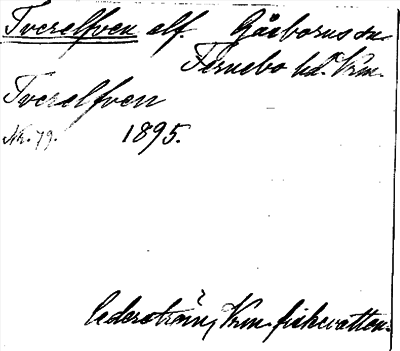 Tverelfven elf. Gåsborns sn.
Fernebo hd. Vrm.
Tverelfven
Nr. 79. 1895.
Cederström, Vrm. fiskevatten.